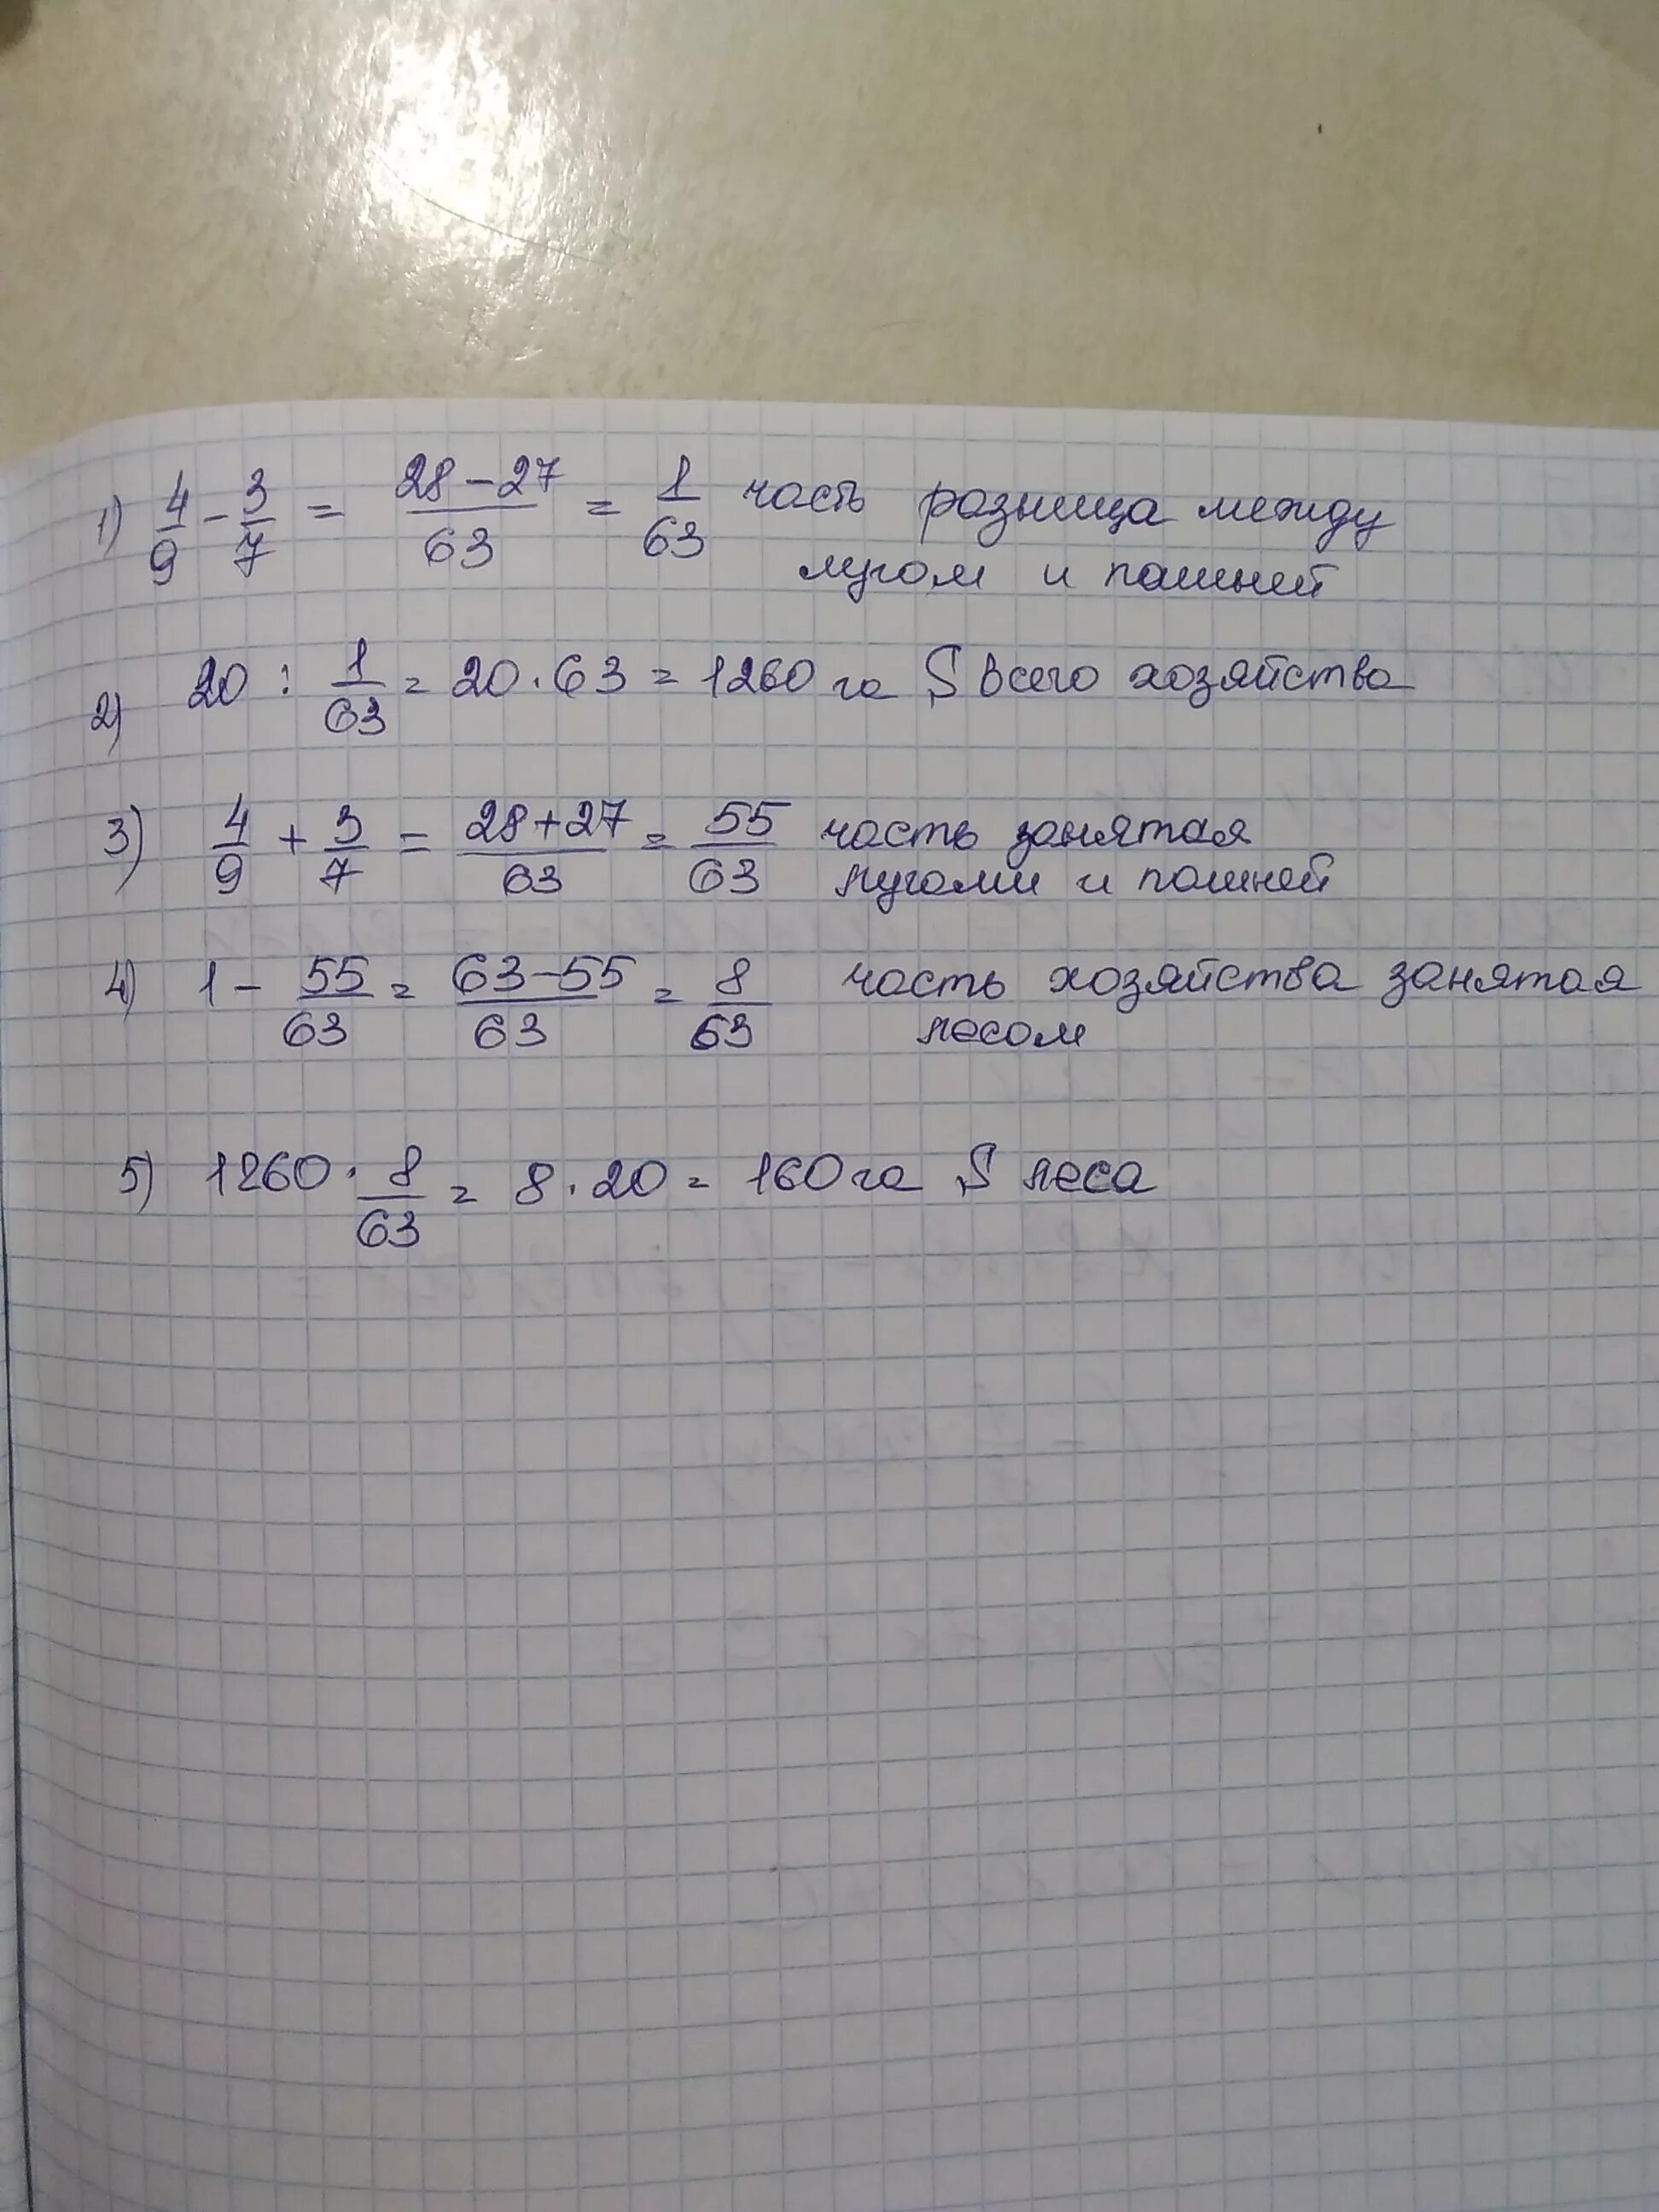 1) 4/9 - 3/7 = (28-27)/63 = 1/63 часть разница между
лугом и пашней
2) 20 : 1/63 = 20·63 = 1260 га S всего хозяйства
3) 4/9 + 3/7 = (28+27)/63 = 55/63 часть занятая
лугами и пашней
4) 1 - 55/63 = (63-55)/63 = 8/63 часть хозяйства занятая
лесом
5) 1260 · 8/63 = 8·20 = 160 га S леса